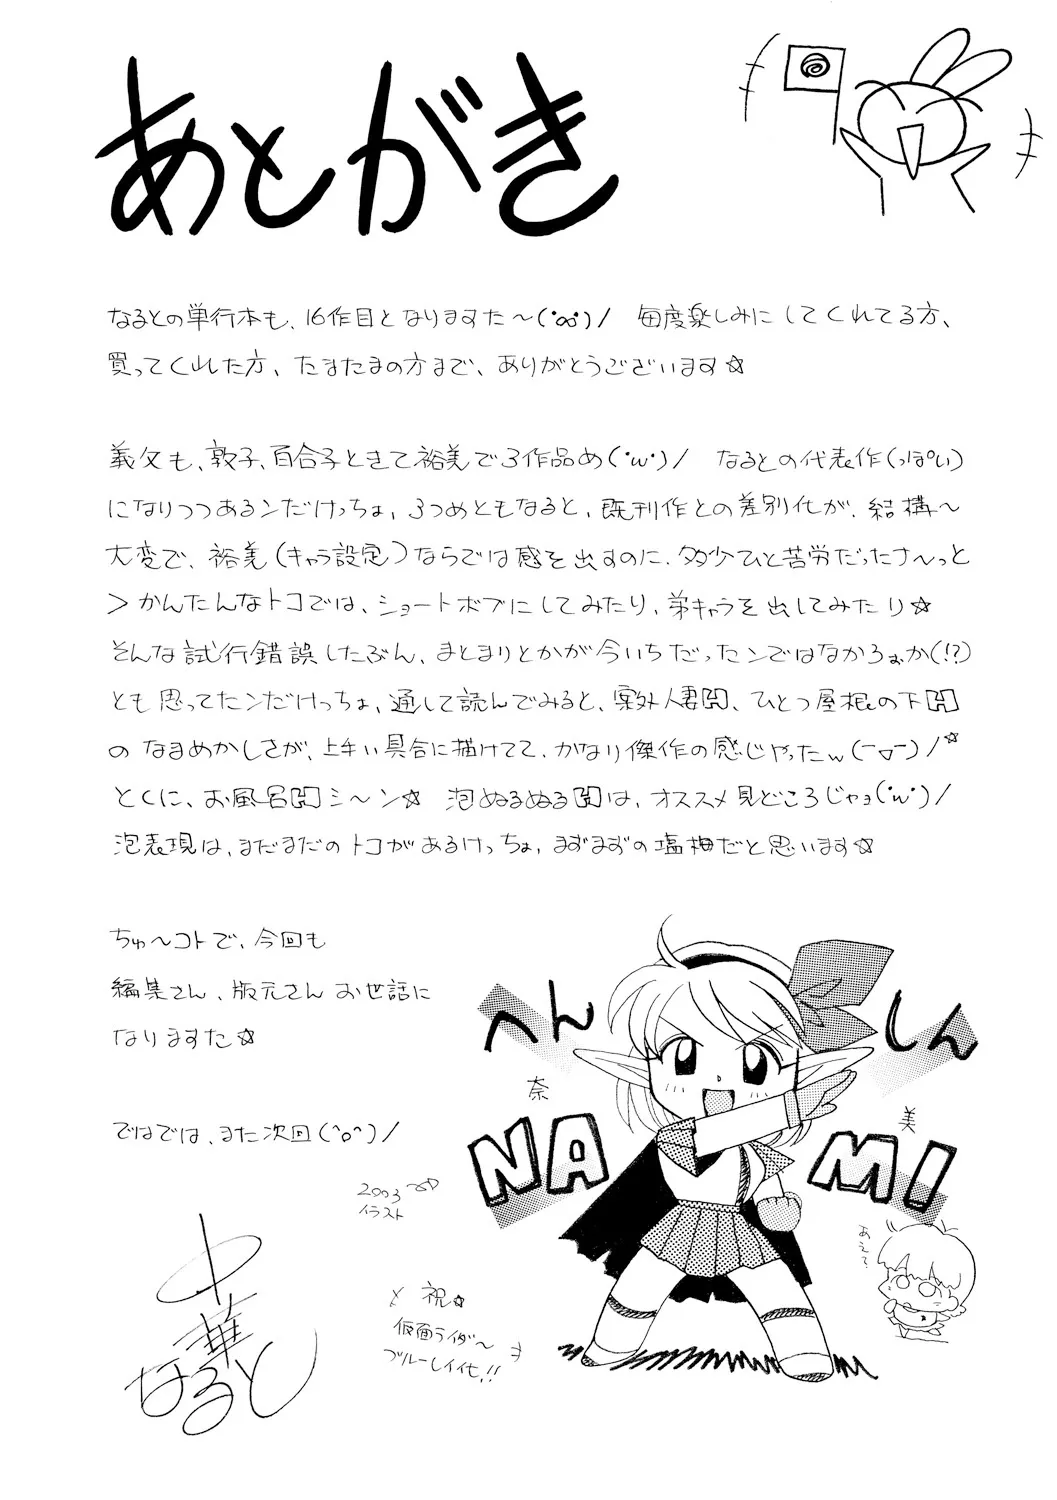 あとがき
なるとの単行本も、16作目となりますた～(°∞°)/　毎度楽しみにしてくれてる方、
買ってくれた方、たまたまの方まで、ありがとうございます☆
義父も、敦子、百合子ときて裕美で3作品め(･w･)/　なるとの代表作(っぽい)
になりつつあるンだけっちょ、3つめともなると、既刊作との差別化が、結構～
大変で、裕美(キャラ設定)ならでは感を出すのに、多少ひと苦労だったナ～っと
＞かんたんなトコでは、ショートボブにしてみたり、弟キャラを出してみたり☆
そんな試行錯誤したぶん、まとまりとかが今いちだったンではなかろぉか(!?)
とも思ってたンだけっちょ、通して読んでみると、案外人妻H、ひとつ屋根の下H
のなまめかしさが、上手い具合に描けてて、かなり傑作の感じやったw(￣▽￣)/☆
とくに、お風呂Hシ～ン☆　泡ぬるぬるHは、オススメ見どころじゃョ(･w･)/
泡表現は、まだまだのトコがあるけっちょ、まずまずの塩梅だと思います☆
ちゅ～コトで、今回も
編集さん、版元さんお世話に
なりますた☆
ではでは、また次回(^o^)/
2003
イラスト
中華
なると
へん
しん
奈
美
NA
MI
あえて
と 祝☆
仮面ライダ～
ブルーレイ化!!